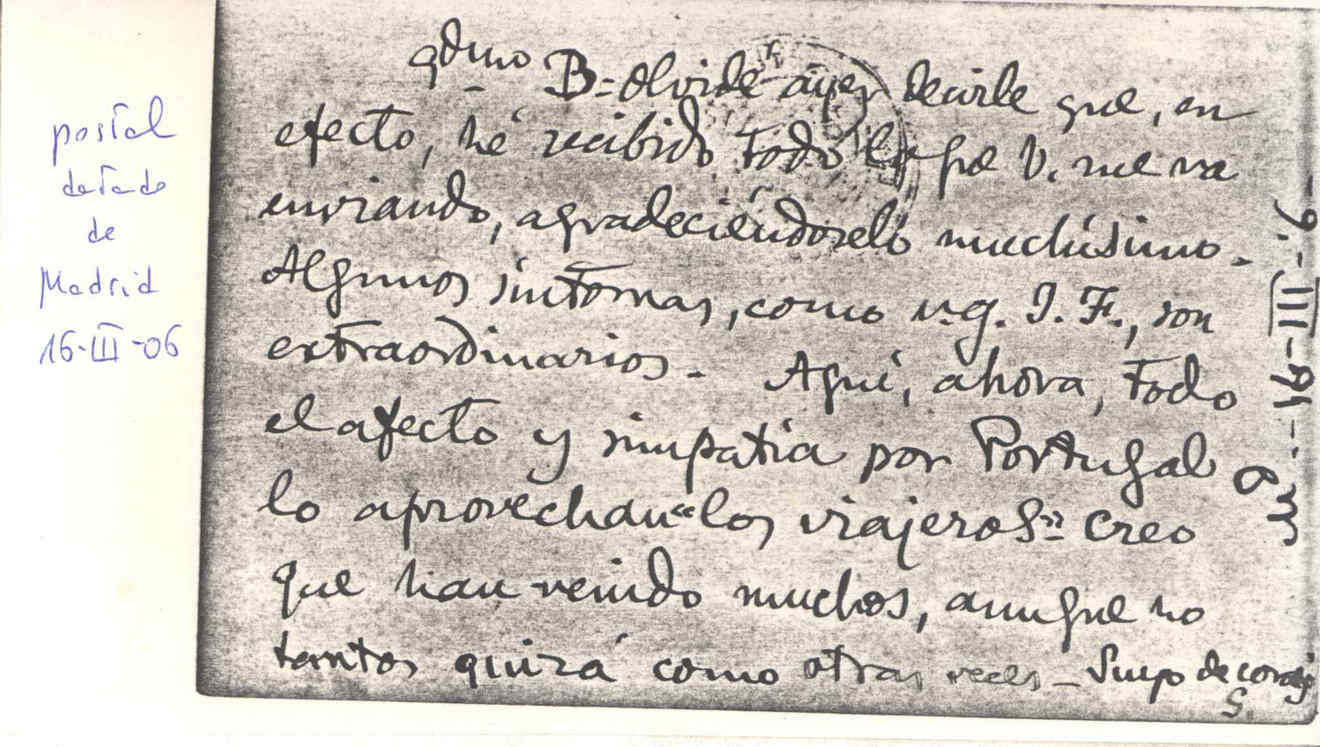 postal
datado
de
Madrid
16-III-06
qdmo B= olvidé ayer decirle que, en
efecto, hé recibido todo lo que V. me va
enviando, agradeciéndoselo muchísimo.
Algunos síntomas, como v.g. I. F., son
extraordinarios. - Aquí, ahora, todo
el afecto y simpatía por Portugal
lo aprovechan "los viajeros": creo
que han venido muchos, aunque no
tantos quizá como otras veces - Suyo de corazón
G.